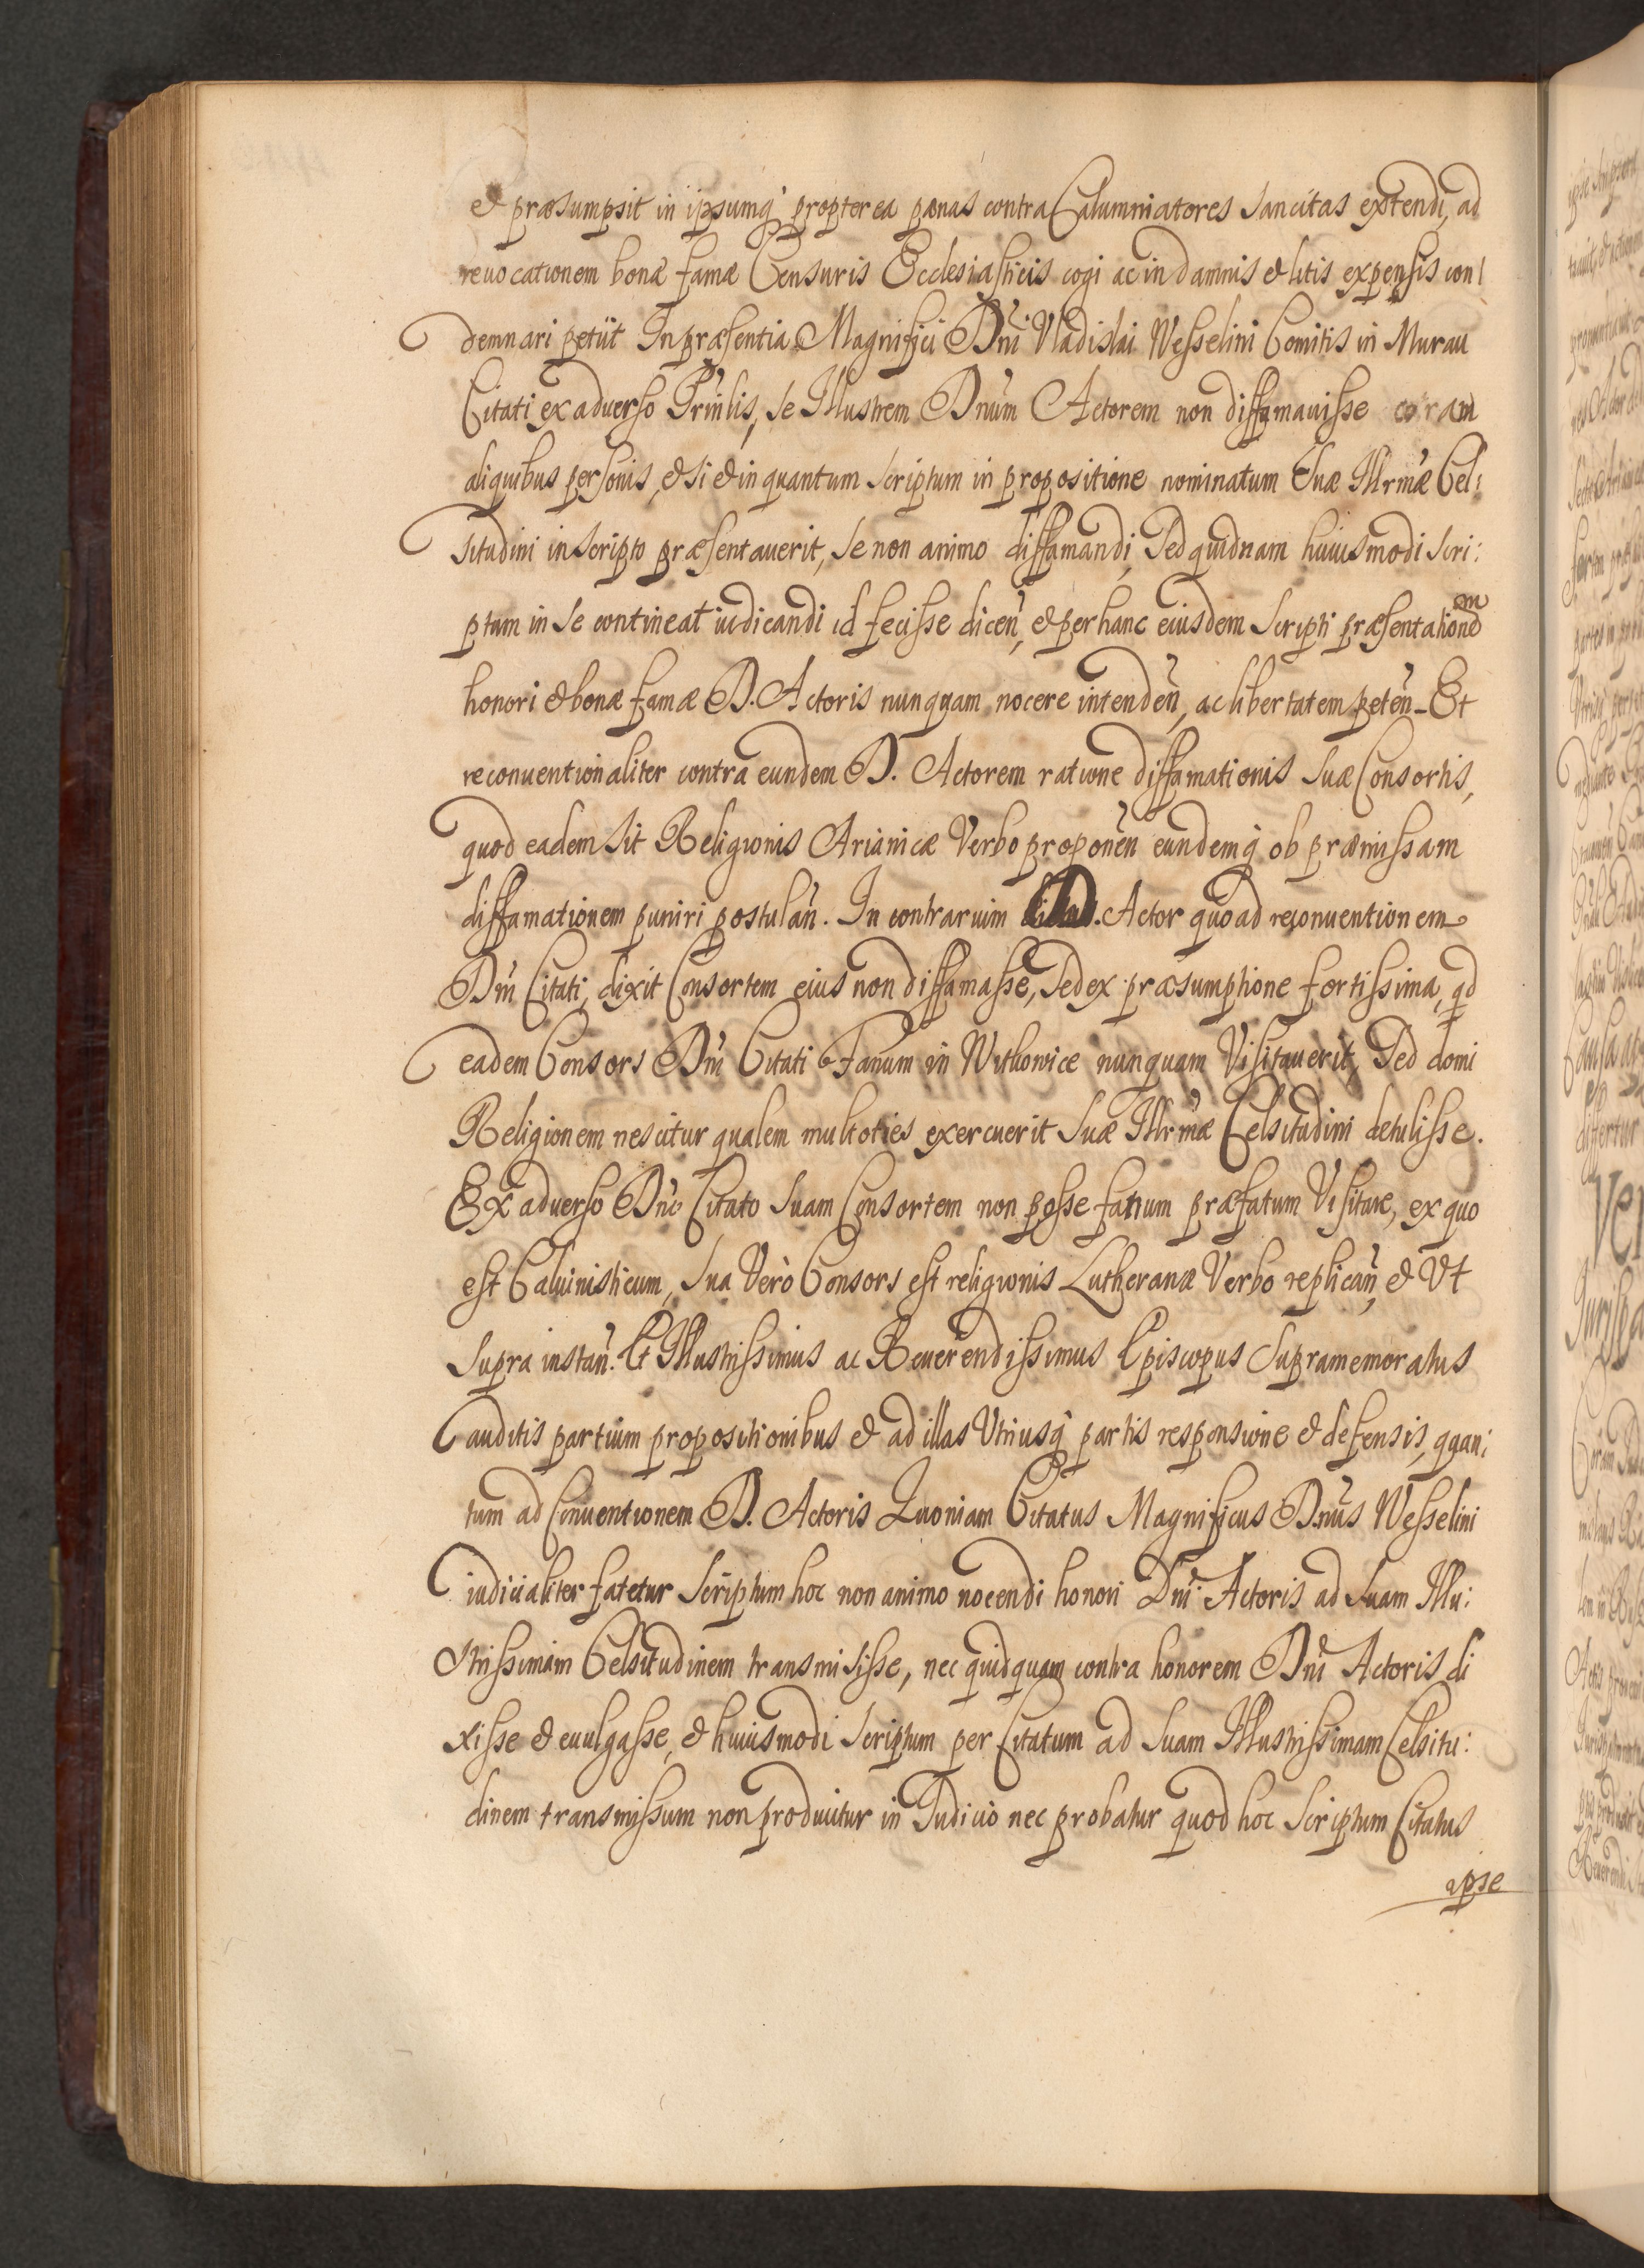 et præsumpsit in ipsumq' propterea pænas contra Calumniatores sancitas extendi, ad
reuocationem bonæ famæ Censuris Ecclesiasticis cogi ac in damnis et litis expensis con
demnari petiit In præsentia Magnifici Dni Vladislai Wesselini Comitis in Murau
Citati ex aduerso Prinlis, se Illustrem Dnum Actorem non diffamauisse coram
aliquibus personis, et si et in quantum scriptum in propositione nominatum Suæ Illrmæ Cel:
situdini in scripto præsentauerit, se non animo diffamandi, Sed quidnam huiusmodi scri:
ptum in se contineat iudicandi id fecisse dicen, et per hanc eiusdem scripti præsentationem
honori et bonæ famæ D. Actoris nunquam nocere intenden, ac libertatem peten – Et
reconuentionaliter contra eundem D. Actorem ratione diffamationis suæ Consortis,
quod eadem sit Religionis Arianicæ Verbo proponen eundemq' ob præmissam
diffamationem puniri postulan. In contrarium D. Actor quo ad reconuentionem
Dni Citati, dixit Consortem eius non diffamasse, Sed ex præsumptione fortissima, qd
eadem Consors Dni Citati Fanum in Witkowice nunquam Visitauerit, Sed domi
Religionem nescitur qualem multoties exercuerit suæ Illrmæ Celsitudini detulisse.
Ex aduerso Dno Citato suam Consortem non posse fanum præfatum Visitare, ex quo
est Caluinisticum, sua Verò Consors est religionis Lutheranæ Verbo replican, et Vt
supra instan. Et Illustrissimus ac Reuerendissimus Episcopus supramemoratus
auditis partium propositionibus et ad illas Vtriusq' partis responsione et defensis, quan:
tum ad Conuentionem D. Actoris Quoniam Citatus Magnificus D.nus Wesselini
iudicialiter fatetur scriptum hoc non animo nocendi honori Dni Actoris ad suam Illu:
strissimam Celsitudinem transmisisse, nec quidquam contra honorem Dni Actoris di
xisse et euulgasse, et huiusmodi scriptum per Citatum ad suam Illustrissimam Celsitu:
dinem transmissum non producitur in Iudicio nec probatur quod hoc scriptum Citatus
ipse